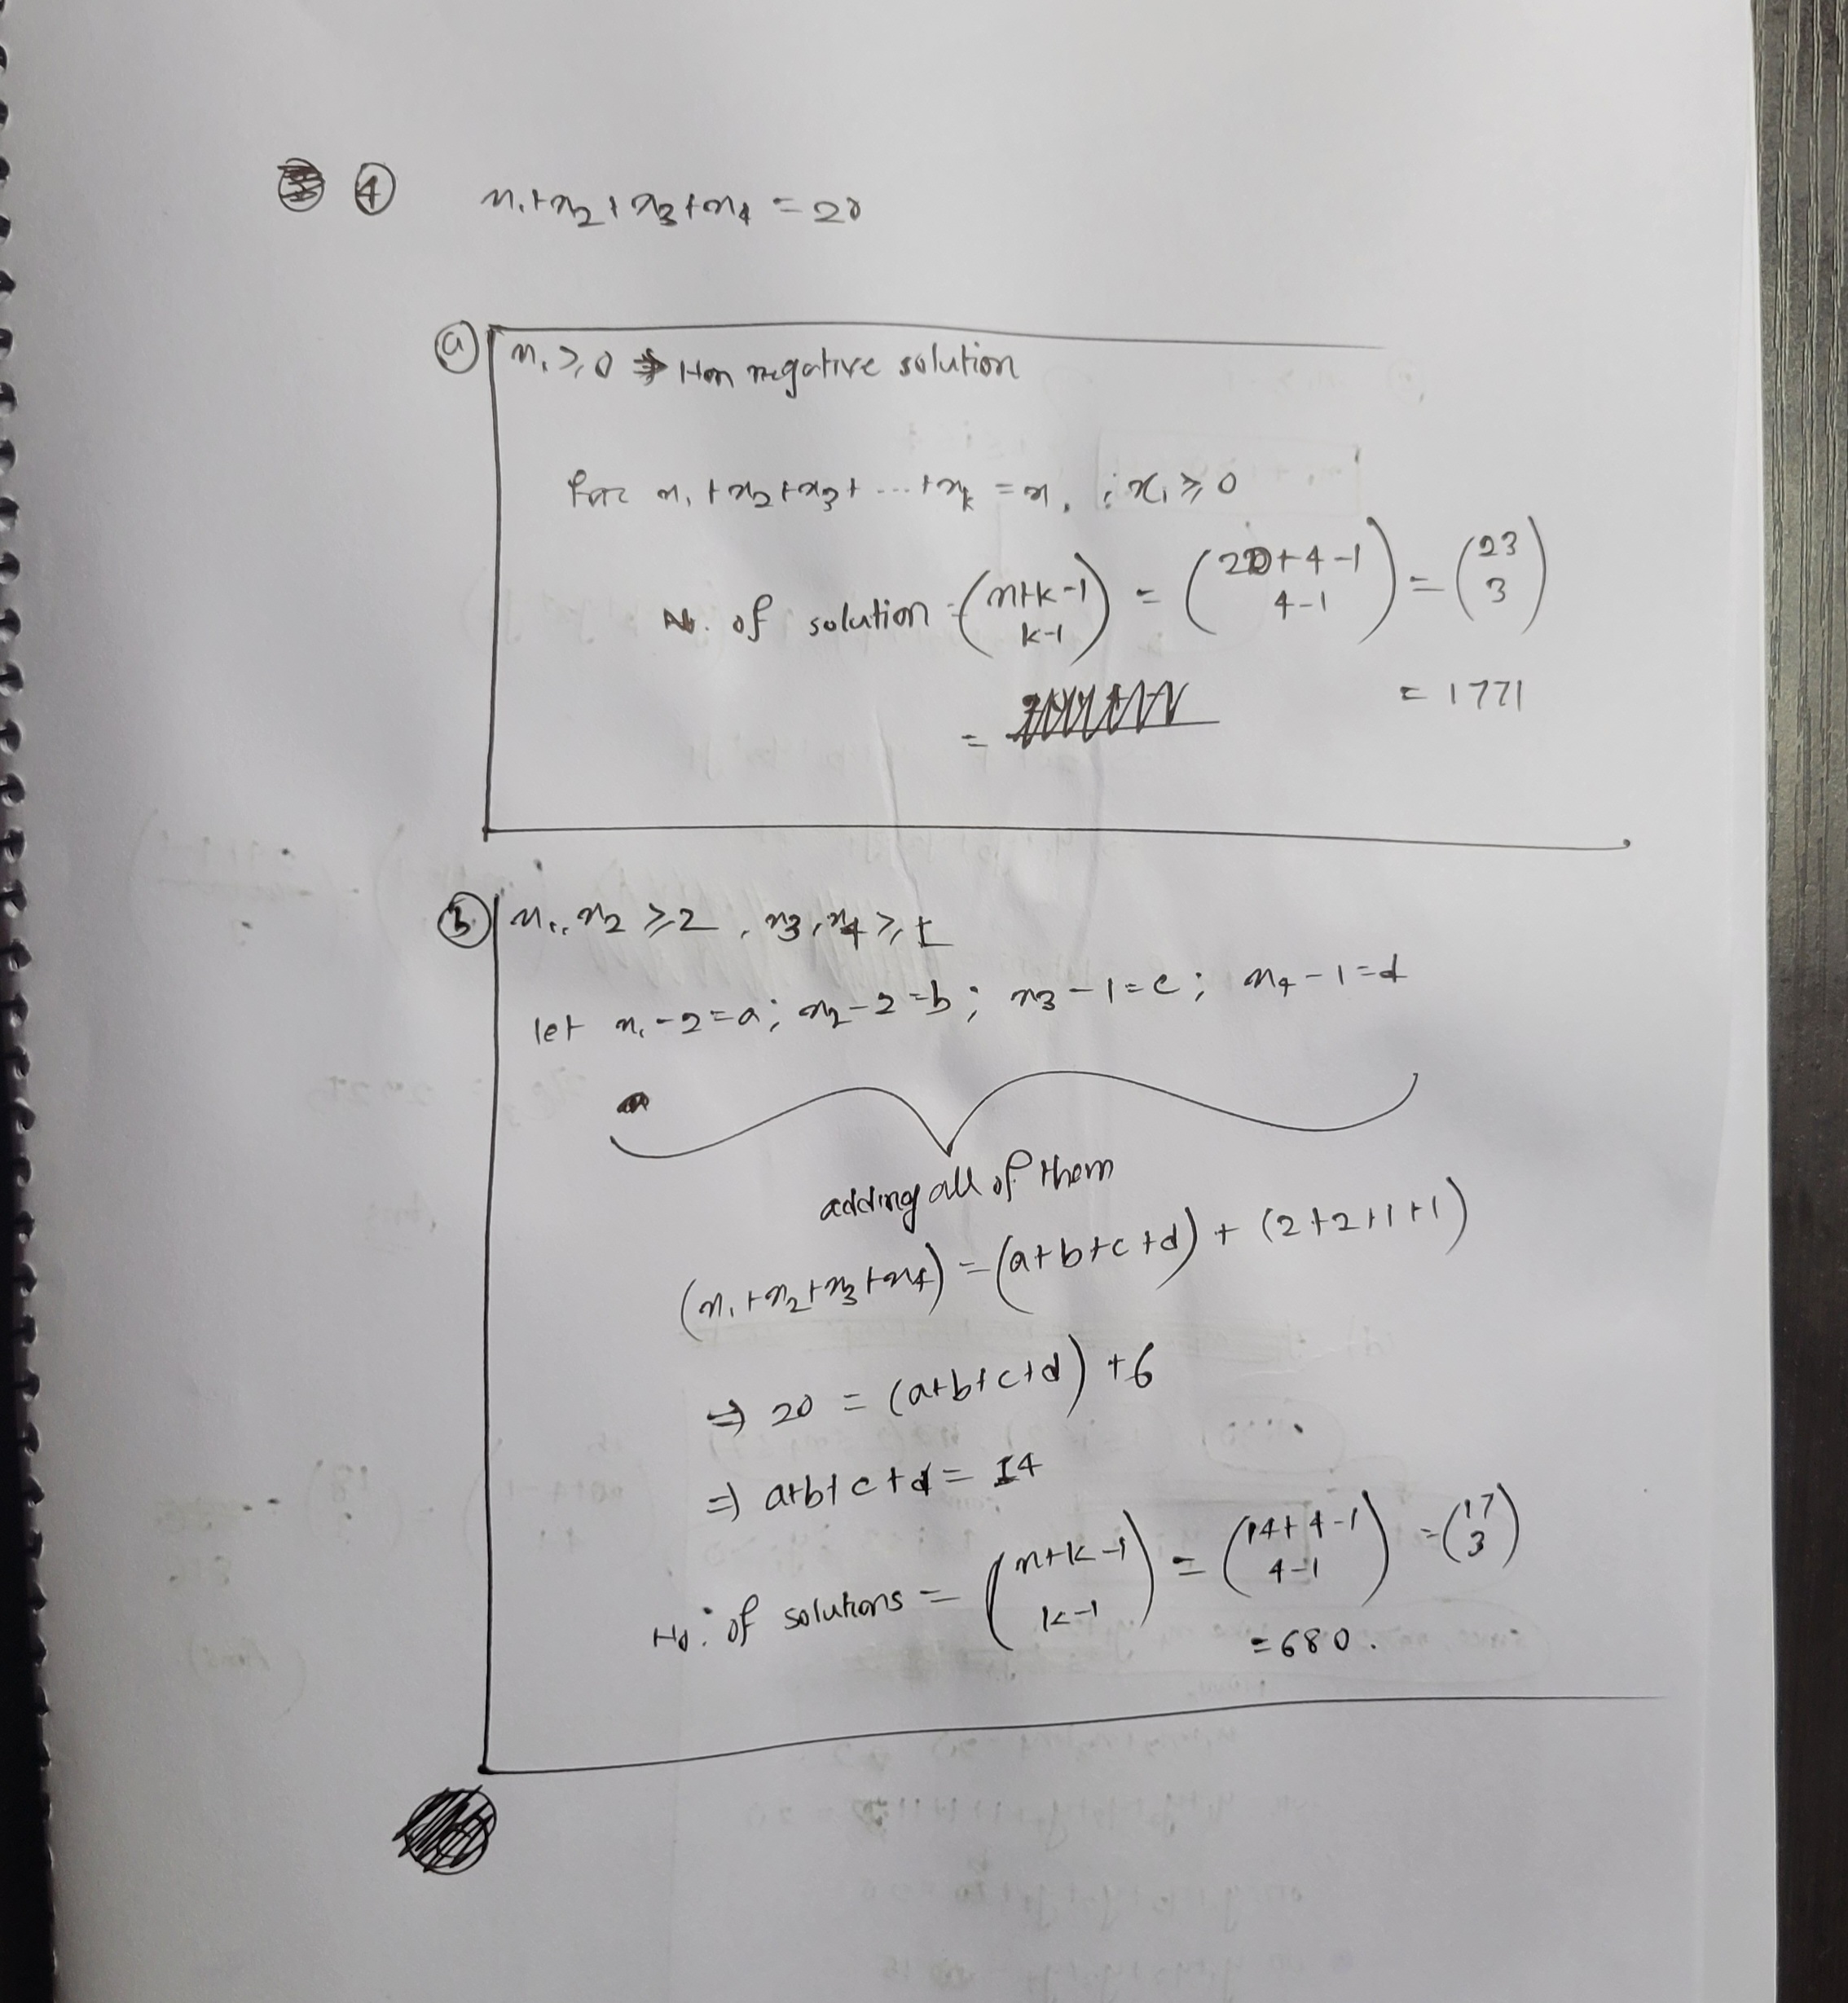 ④ x₁+x₂+x₃+x₄ = 20
ⓐ x₁ ≥ 0 ⇒ Non negative solution
For x₁+x₂+x₃+...+xₖ = n, ; xᵢ ≥ 0
No. of solution = (n+k-1 / k-1) = (20+4-1 / 4-1) = (23 / 3)
= = 1771
ⓑ x₁, x₂ ≥ 2, x₃, x₄ ≥ 1
let x₁-2=a; x₂-2=b; x₃-1=c; x₄-1=d
adding all of them
(x₁+x₂+x₃+x₄) = (a+b+c+d) + (2+2+1+1)
⇒ 20 = (a+b+c+d) +6
⇒ a+b+c+d = 14
No: of solutions = (n+k-1 / k-1) = (14+4-1 / 4-1) = (17 / 3)
= 680.